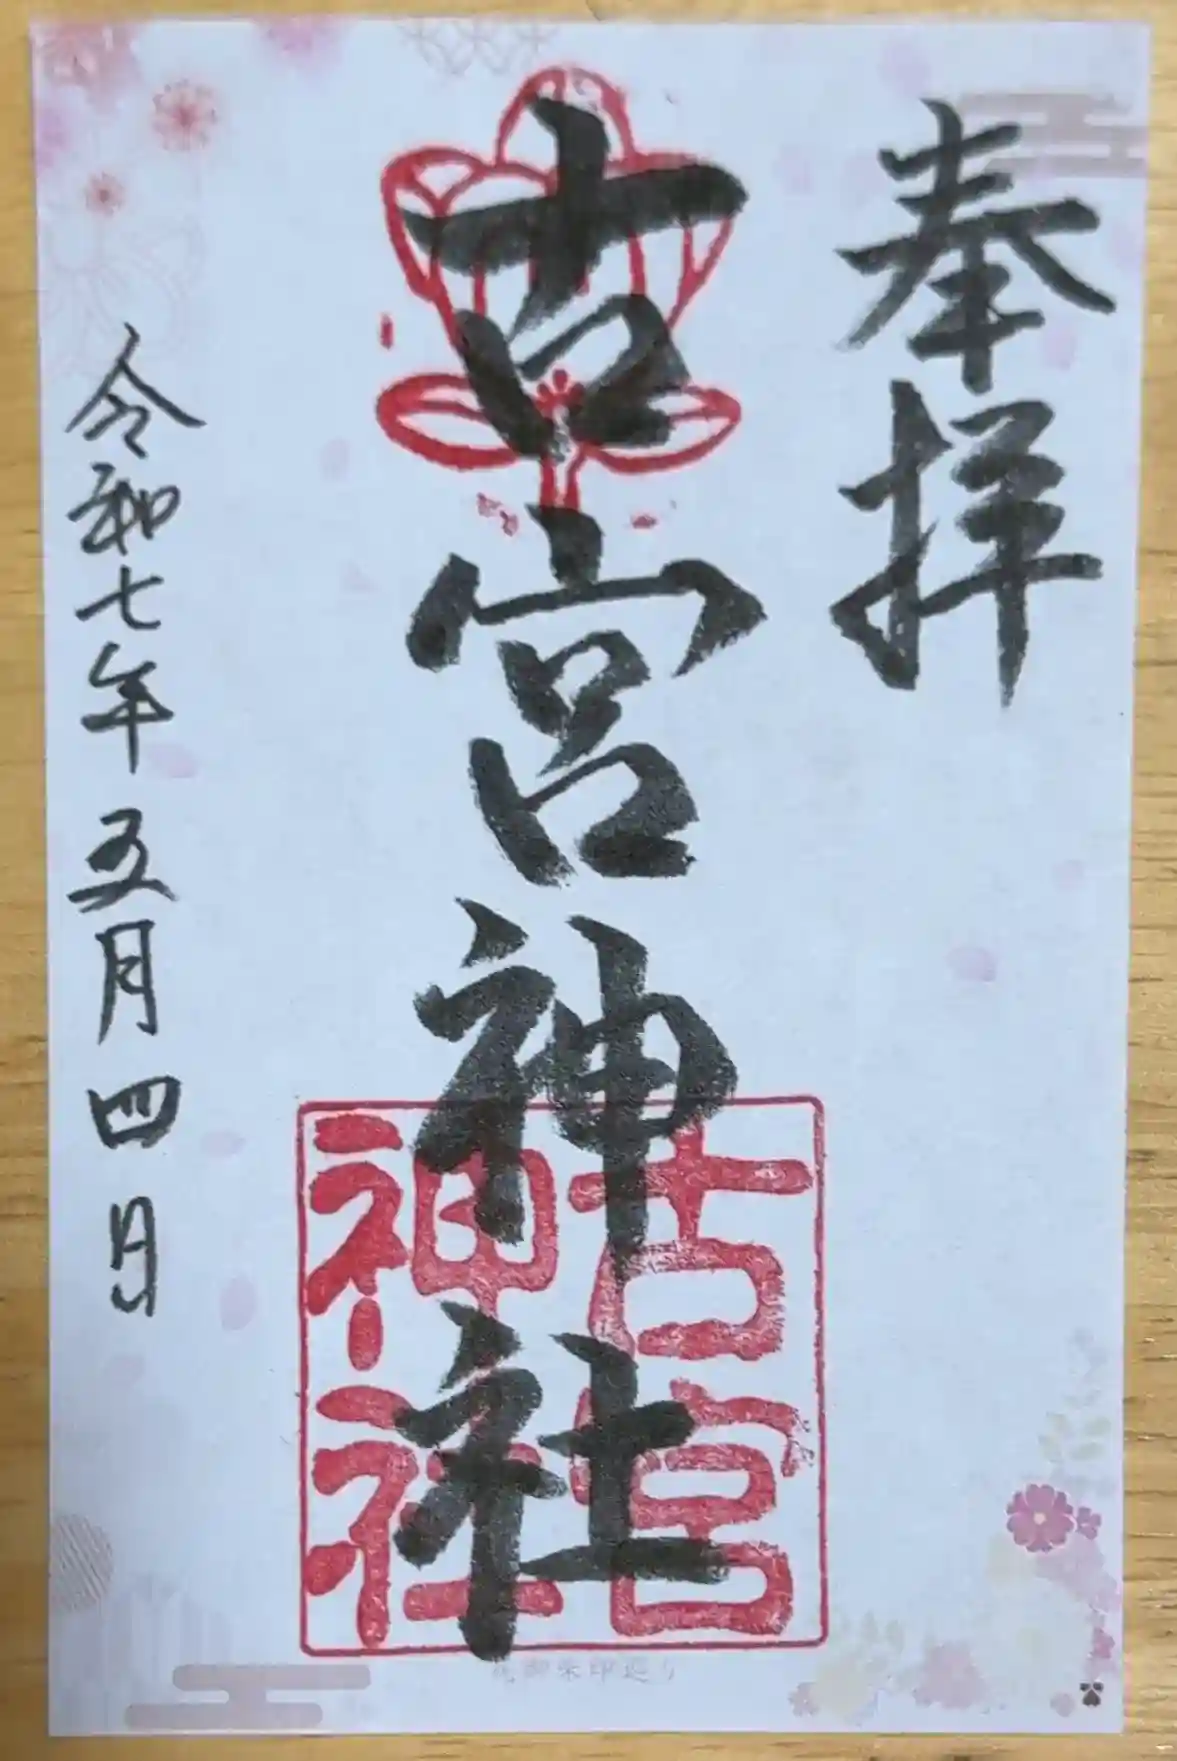 奉拝
古宮神社
古宮神社
令和七年五月四日
花御朱印巡り